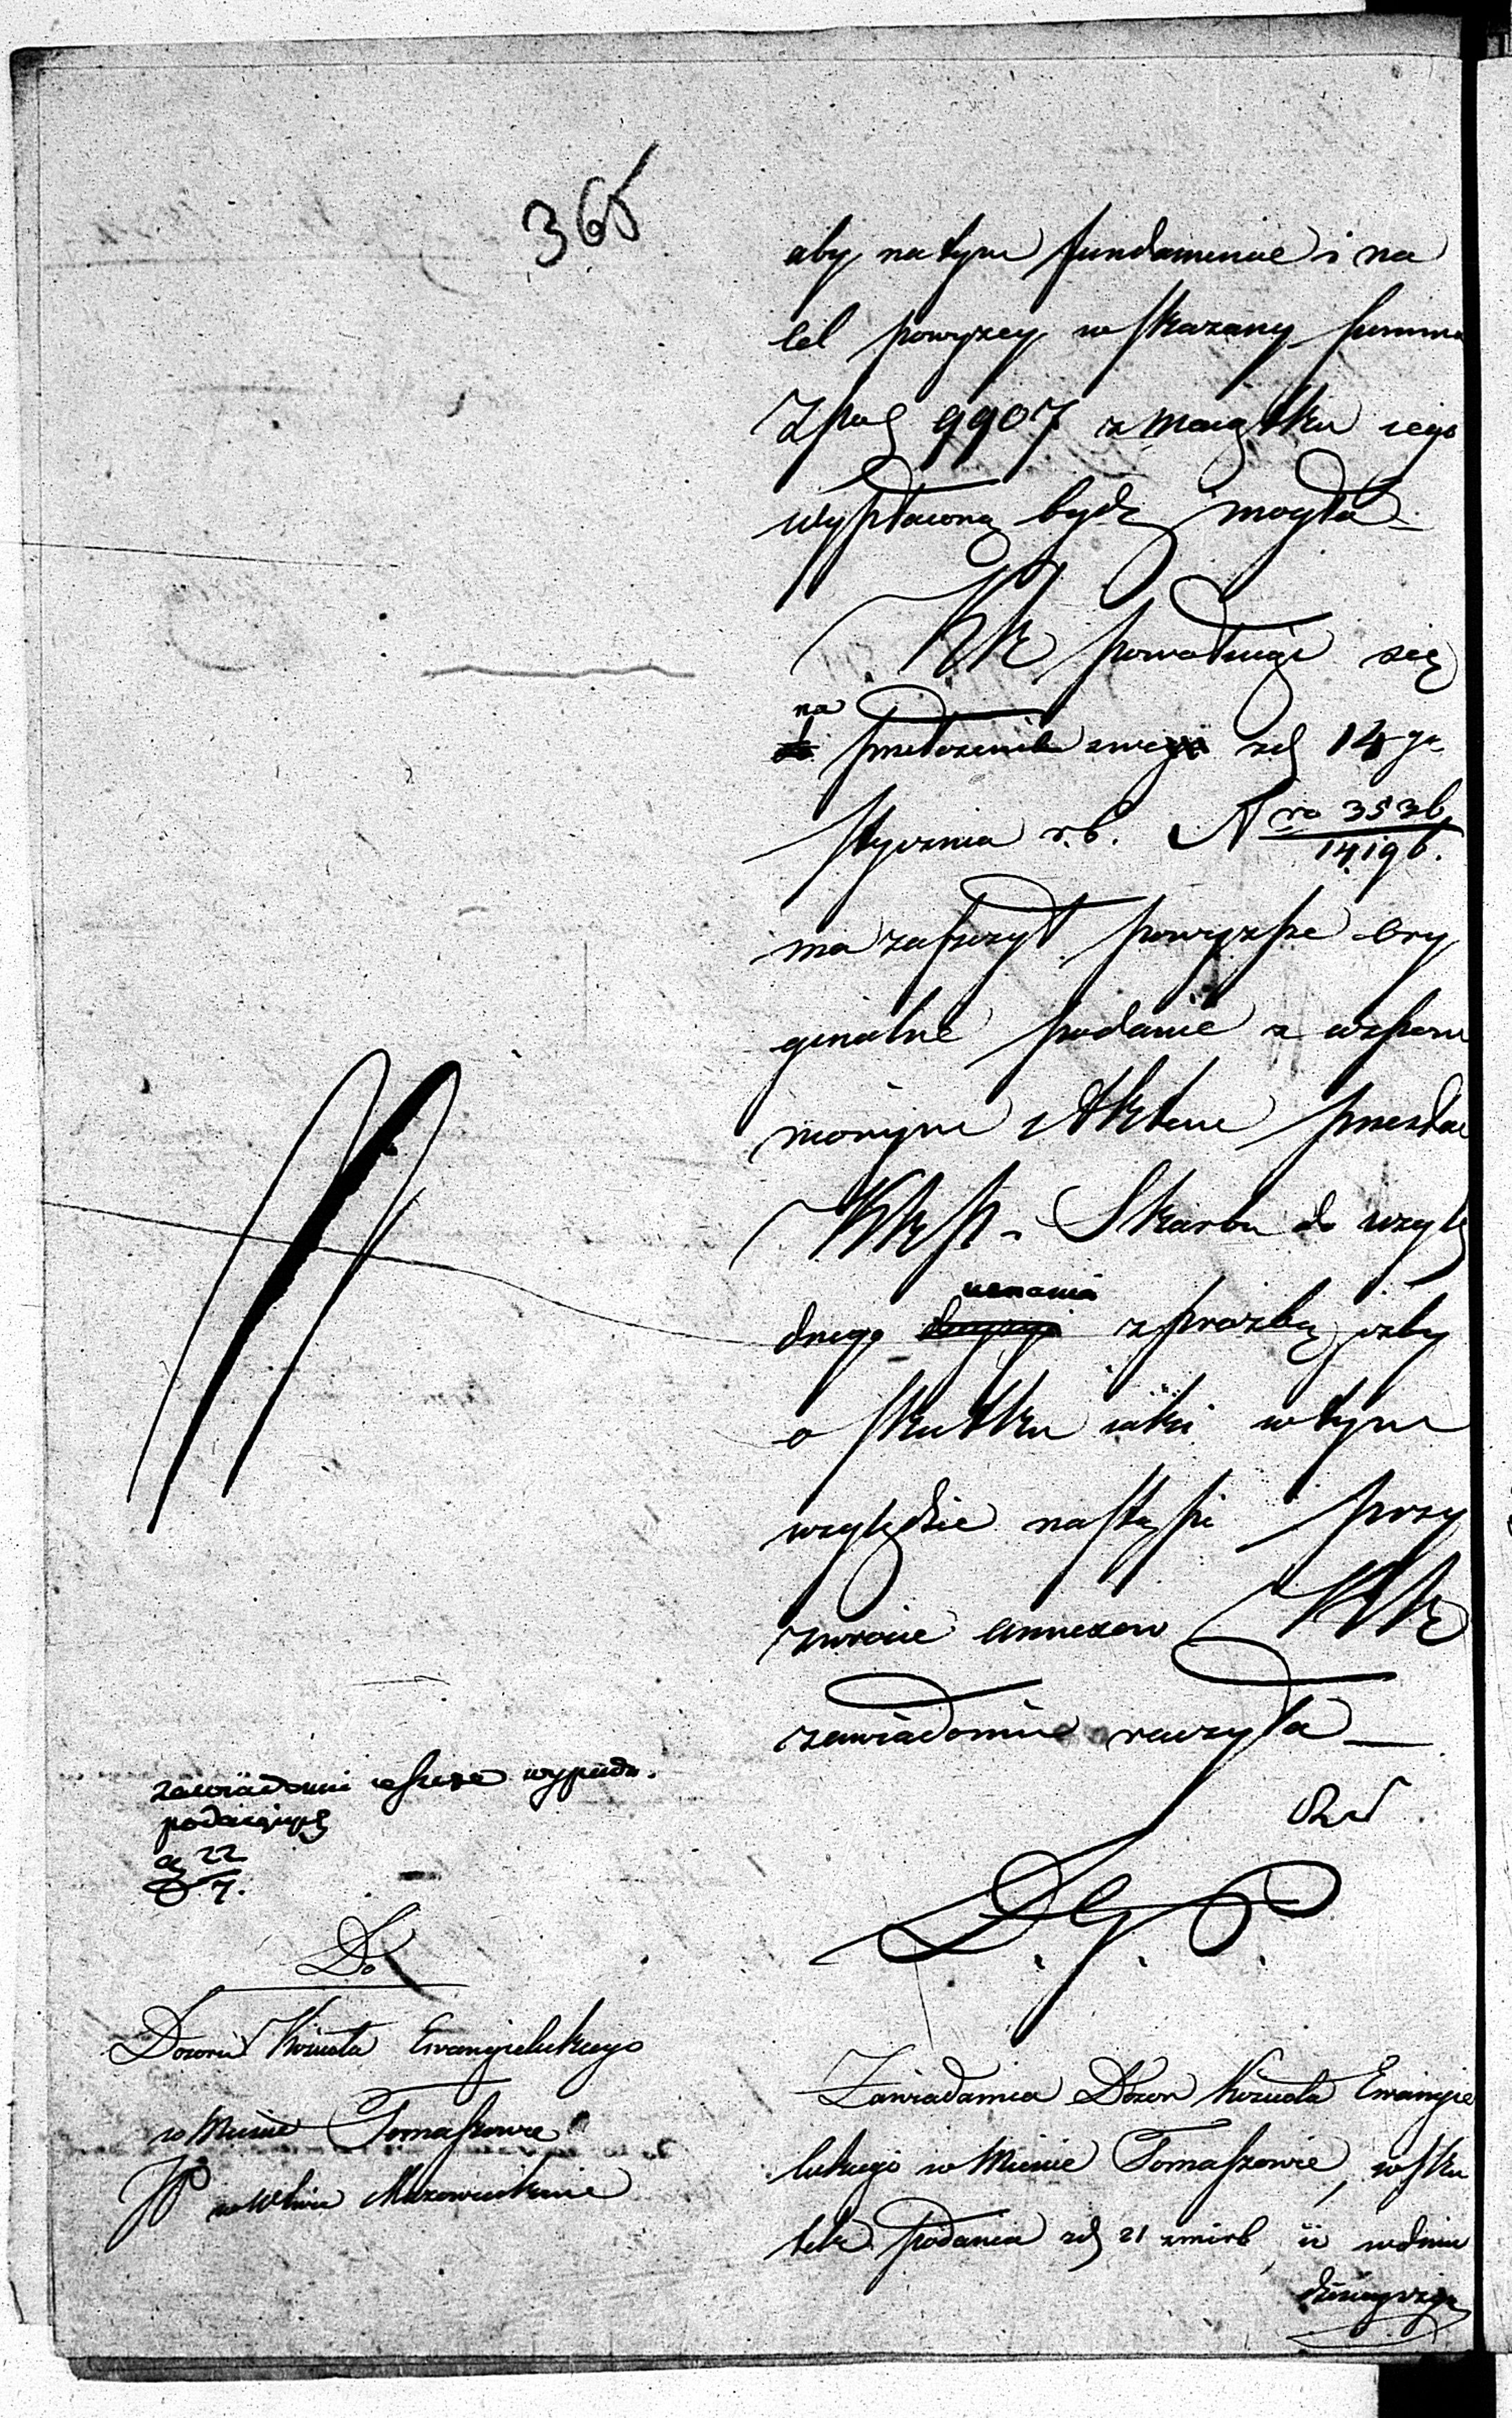 365
aby na tym fundamencie i na
cel powyżey wskazany summa
Zpol 9907 z maiątku iego
wypłaconą bydź mogła.
KR powołuiąc się
na
do przełożenia swego zd 14 go
stycznia r.b. Nro 3536/14196.
ma zaszczyt powyższe ory
ginalne podanie z wspom
nionym Aktem przesłać
KRP. Skarbu do wzglę
uznania
dnego z prośbą, iżby
o skutku iaki w tym
względzie nastąpi przy
zwrocie annexow KR
zawiadomić raczyła
D.G.P.
zawiadomić wypadu.
podaiących
22
7.
Do
Dozoru Kościoła Ewangielickiego
w Mieście Tomaszowie
W wWtwie Mazowieckiem
Zawiadamia Dozor Kościoła Ewangie
lickiego w Mieście Tomaszowie, w sku
tek podania zd 21 zm i rb, iż w dniu
dzisieyszym